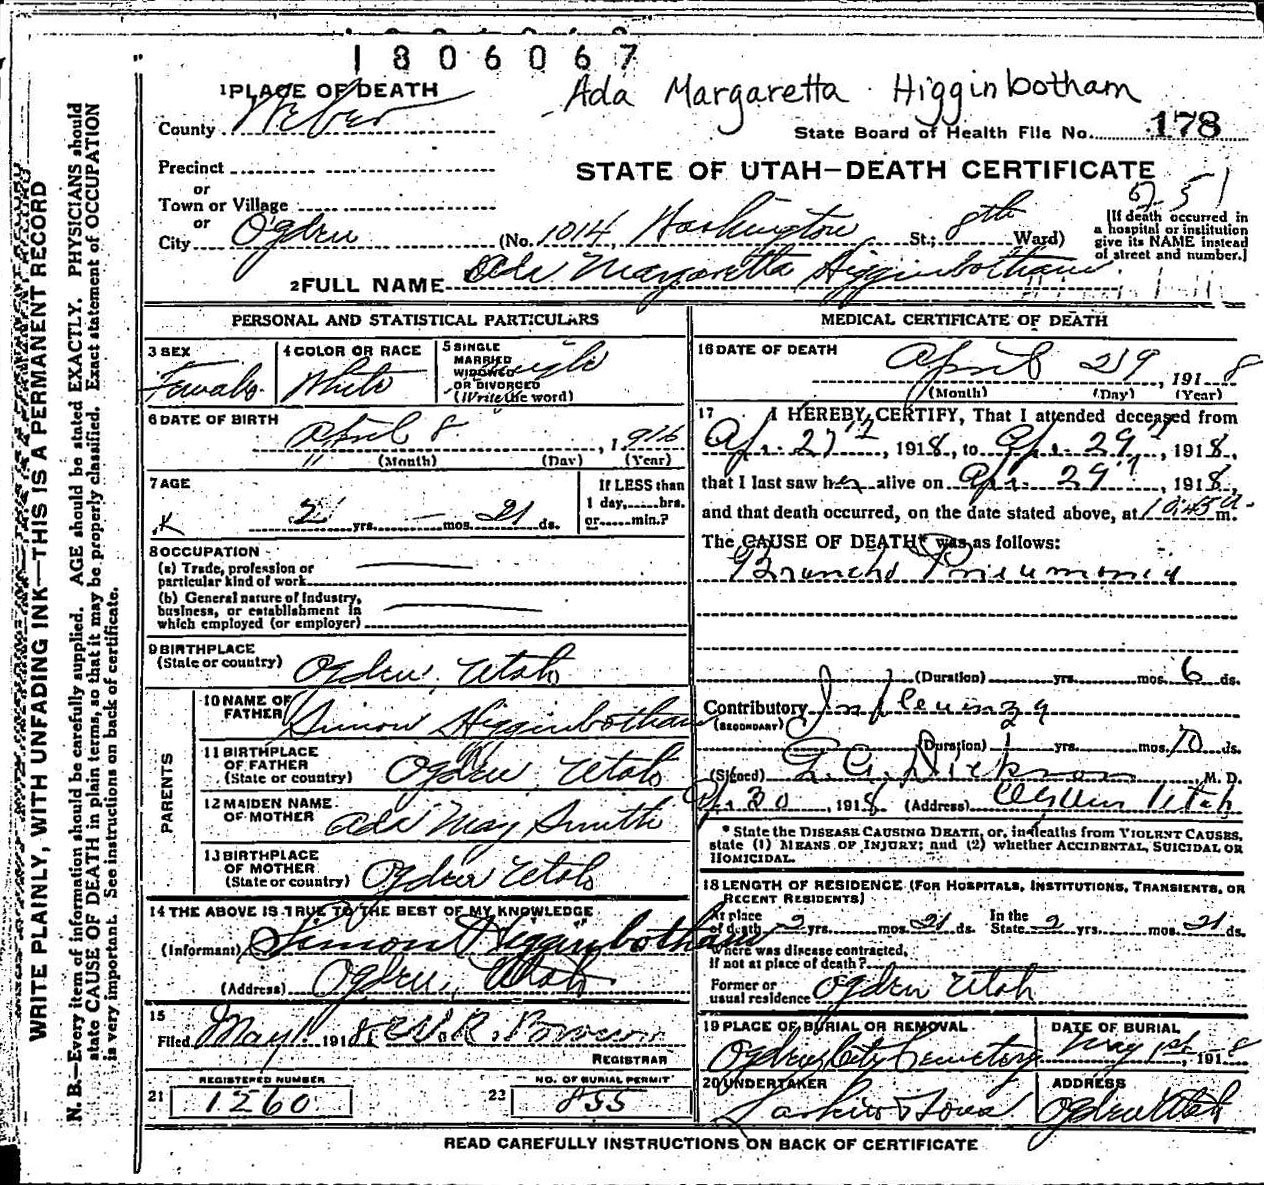 1806067
Ada Margaretta Higginbotham
1 PLACE OF DEATH
County Weber
State Board of Health File No. 178
Precinct
STATE OF UTAH—DEATH CERTIFICATE
or
Town or Village
251
or
City Ogden (No. 1014, Washington St.; 8th Ward)
[If death occurred in
a hospital or institution
give its NAME instead
of street and number.]
2 FULL NAME Ada Margaretta Higginbotham
PERSONAL AND STATISTICAL PARTICULARS
3 SEX
Female
4 COLOR OR RACE
White
5 SINGLE
MARRIED
WIDOWED
OR DIVORCED
(Write the word)
Single
6 DATE OF BIRTH
April 8, 1916
(Month) (Day) (Year)
7 AGE
2 yrs. — mos. 21 ds.
If LESS than
1 day, hrs.
or min.?
8 OCCUPATION
(a) Trade, profession or
particular kind of work
(b) General nature of industry,
business, or establishment in
which employed (or employer)
9 BIRTHPLACE
(State or country) Ogden, Utah
PARENTS
10 NAME OF
FATHER Simon Higginbotham
11 BIRTHPLACE
OF FATHER
(State or country) Ogden Utah
12 MAIDEN NAME
OF MOTHER Ada May Smith
13 BIRTHPLACE
OF MOTHER
(State or country) Ogden Utah
14 THE ABOVE IS TRUE TO THE BEST OF MY KNOWLEDGE
(Informant) Simon Higginbotham
(Address) Ogden, Utah
15
Filed May 1, 1918
REGISTRAR
REGISTERED NUMBER
21 1260
NO. OF BURIAL PERMIT
22 855
MEDICAL CERTIFICATE OF DEATH
16 DATE OF DEATH
April 29, 1918
(Month) (Day) (Year)
17 I HEREBY CERTIFY, That I attended deceased from
Ap. 27, 1918, to Ap. 29, 1918,
that I last saw her alive on Ap. 29, 1918,
and that death occurred, on the date stated above, at 10.45 a. m.
The CAUSE OF DEATH* was as follows:
Broncho Pneumonia
(Duration) yrs. mos. 6 ds.
Contributory Influenza
(SECONDARY)
(Duration) yrs. mos. 10 ds.
(Signed) M. D.
Ap. 30, 1918 (Address) Ogden Utah
* State the DISEASE CAUSING DEATH, or, in deaths from VIOLENT CAUSES,
state (1) MEANS OF INJURY; and (2) whether ACCIDENTAL, SUICIDAL OR
HOMICIDAL.
18 LENGTH OF RESIDENCE (FOR HOSPITALS, INSTITUTIONS, TRANSIENTS, OR
RECENT RESIDENTS)
At place
of death 2 yrs. mos. 21 ds.
In the
State 2 yrs. mos. 21 ds.
Where was disease contracted,
if not at place of death?
Former or
usual residence Ogden Utah
19 PLACE OF BURIAL OR REMOVAL
Ogden City Cemetery
DATE OF BURIAL
May 1st, 1918
20 UNDERTAKER
Larkin & Sons
ADDRESS
Ogden Utah
READ CAREFULLY INSTRUCTIONS ON BACK OF CERTIFICATE
WRITE PLAINLY, WITH UNFADING INK—THIS IS A PERMANENT RECORD
N. B.—Every item of information should be carefully supplied. AGE should be stated EXACTLY. PHYSICIANS should
state CAUSE OF DEATH in plain terms, so that it may be properly classified. Exact statement of OCCUPATION
is very important. See instructions on back of certificate.